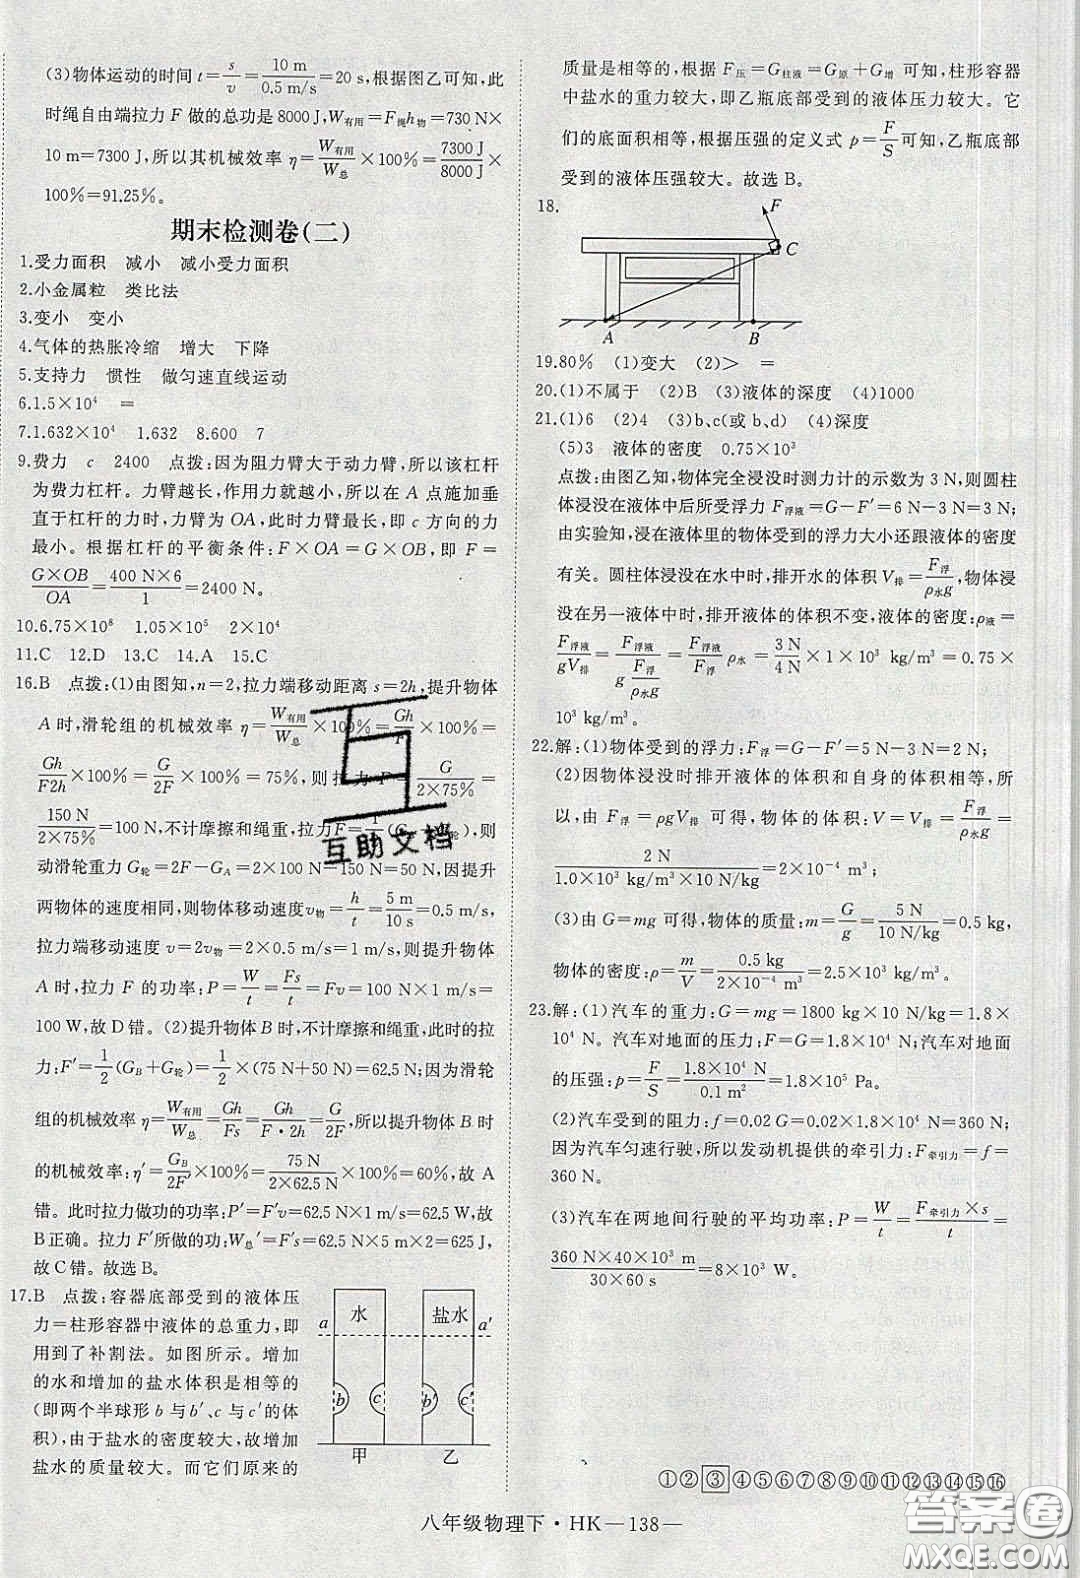 (3)物体运动的时间 t=s/v=10 m/0.5 m/s=20 s,根据图乙可知,此
时绳自由端拉力 F 做的总功是 8000 J,W有用=F绳h物=730 N×
10 m=7300 J,所以其机械效率 η=W有用/W总×100%=7300 J/8000 J×
100%=91.25%。
期末检测卷(二)
1.受力面积 减小 减小受力面积
2.小金属粒 类比法
3.变小 变小
4.气体的热胀冷缩 增大 下降
5.支持力 惯性 做匀速直线运动
6.1.5×10⁴ =
7.1.632×10⁴ 1.632 8.600 7
9.费力 c 2400 点拨:因为阻力臂大于动力臂,所以该杠杆
为费力杠杆。力臂越长,作用力就越小,所以在 A 点施加垂
直于杠杆的力时,力臂为 OA,此时力臂最长,即 c 方向的力
最小。根据杠杆的平衡条件:F×OA=G×OB,即 F=
G×OB/OA=400 N×6/1=2400 N。
10.6.75×10⁸ 1.05×10⁵ 2×10⁴
11.C 12.D 13.C 14.A 15.C
16.B 点拨:(1)由图知,n=2,拉力端移动距离 s=2h,提升物体
A 时,滑轮组的机械效率 η=W有用/W总×100%=Gh/F×100%=
Gh/F2h×100%=G/2F×100%=75%,则拉力 F=G/2×75%=
150 N/2×75%=100 N,不计摩擦和绳重,拉力F=1/2(G+G轮),则
动滑轮重力 G轮=2F-GA=2×100 N-150 N=50 N,提升
两物体的速度相同,则物体移动速度v物=h/t=5 m/10 s=0.5 m/s,
拉力端移动速度 v=2v物=2×0.5 m/s=1 m/s,则提升物体
A 时,拉力 F 的功率:P=W/t=Fs/t=Fv=100 N×1 m/s=
100 W,故 D 错。(2)提升物体 B 时,不计摩擦和绳重,此时的拉
力:F′=1/2(GB+G轮)=1/2×(75 N+50 N)=62.5 N;因为滑轮
组的机械效率 η=W有用/W总=Gh/Fs=Gh/F·2h=G/2F,所以提升物体 B 时
的机械效率:η′=GB/2F′×100%=75 N/2×62.5 N×100%=60%,故 A
错。此时拉力做功的功率:P′=F′v=62.5 N×1 m/s=62.5 W,故
B 正确。拉力 F′所做的功:W总′=F′s=62.5 N×5 m×2=625 J,
故 C 错。故选 B。
17.B 点拨:容器底部受到的液体压
力=柱形容器中液体的总重力,即
用到了补割法。如图所示。增加
的水和增加的盐水体积是相等的
(即两个半球形 b 与 b′、c 与 c′的体
积),由于盐水的密度较大,故增加
盐水的质量较大。而它们原来的
水 盐水
a a′
b c b′ c′
甲 乙
质量是相等的,根据 F压=G柱液=G原+G增 可知,柱形容器
中盐水的重力较大,即乙瓶底部受到的液体压力较大。它
们的底面积相等,根据压强的定义式 p=F/S可知,乙瓶底部
受到的液体压强较大。故选 B。
18.
F
C
A B
19.80% (1)变大 (2)> =
20.(1)不属于 (2)B (3)液体的深度 (4)1000
21.(1)6 (2)4 (3)b、c(或 b、d) (4)深度
(5)3 液体的密度 0.75×10³
点拨:由图乙知,物体完全浸没时测力计的示数为 3 N,则圆柱
体浸没在液体中后所受浮力 F浮液=G-F′=6 N-3 N=3 N;
由实验知,浸没在液体里的物体受到的浮力大小还跟液体的密度
有关。圆柱体浸没在水中时,排开水的体积 V排=F浮/ρ水g,物体浸
没在另一液体中时,排开液体的体积不变,液体的密度:ρ液=
F浮液/gV排=F浮液/(g F浮/ρ水g)=F浮液/F浮 ρ水=3 N/4 N×1×10³ kg/m³=0.75×
10³ kg/m³。
22.解:(1)物体受到的浮力:F浮=G-F′=5 N-3 N=2 N;
(2)因物体浸没时排开液体的体积和自身的体积相等,所
以,由 F浮=ρgV排 可得,物体的体积:V=V排=F浮/ρ水g=
2 N/1.0×10³ kg/m³×10 N/kg=2×10⁻⁴ m³;
(3)由 G=mg 可得,物体的质量:m=G/g=5 N/10 N/kg=0.5 kg,
物体的密度:ρ=m/V=0.5 kg/2×10⁻⁴ m³=2.5×10³ kg/m³。
23.解:(1)汽车的重力:G=mg=1800 kg×10 N/kg=1.8×
10⁴ N。汽车对地面的压力:F=G=1.8×10⁴ N;汽车对地面
的压强:p=F/S=1.8×10⁴ N/0.1 m²=1.8×10⁵ Pa。
(2)汽车受到的阻力:f=0.02 G=0.02×1.8×10⁴ N=360 N;
因为汽车匀速行驶,所以发动机提供的牵引力:F牵引力=f=
360 N。
(3)汽车在两地间行驶的平均功率:P=W/t=F牵引力×s/t=
360 N×40×10³ m/30×60 s=8×10³ W。
①②③④⑤⑥⑦⑧⑨⑩⑪⑫⑬⑭⑮⑯
八年级物理下·HK—138—
互助文档
答案圈
MXQE.COM